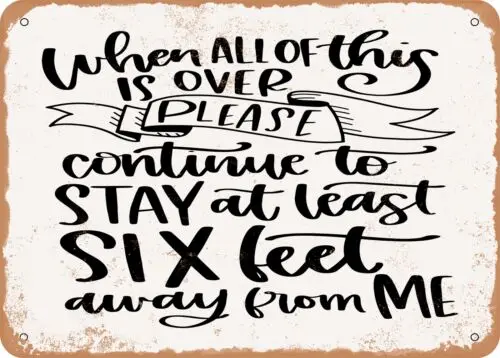 When ALL OF this
IS OVER
PLEASE
continue to
STAY at least
SIX feet
away from ME